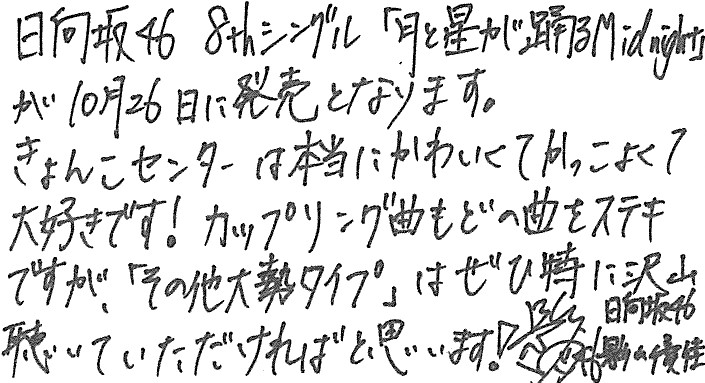 日向坂46 8thシングル「月と星が踊るMidnight」
が10月26日に発売となります。
きょんこセンターは本当にかわいくてかっこよくて
大好きです！カップリング曲もどの曲もステキ
ですが、「その他大勢タイプ」はぜひ特に沢山
聴いていただければと思います！
日向坂46
影山優佳